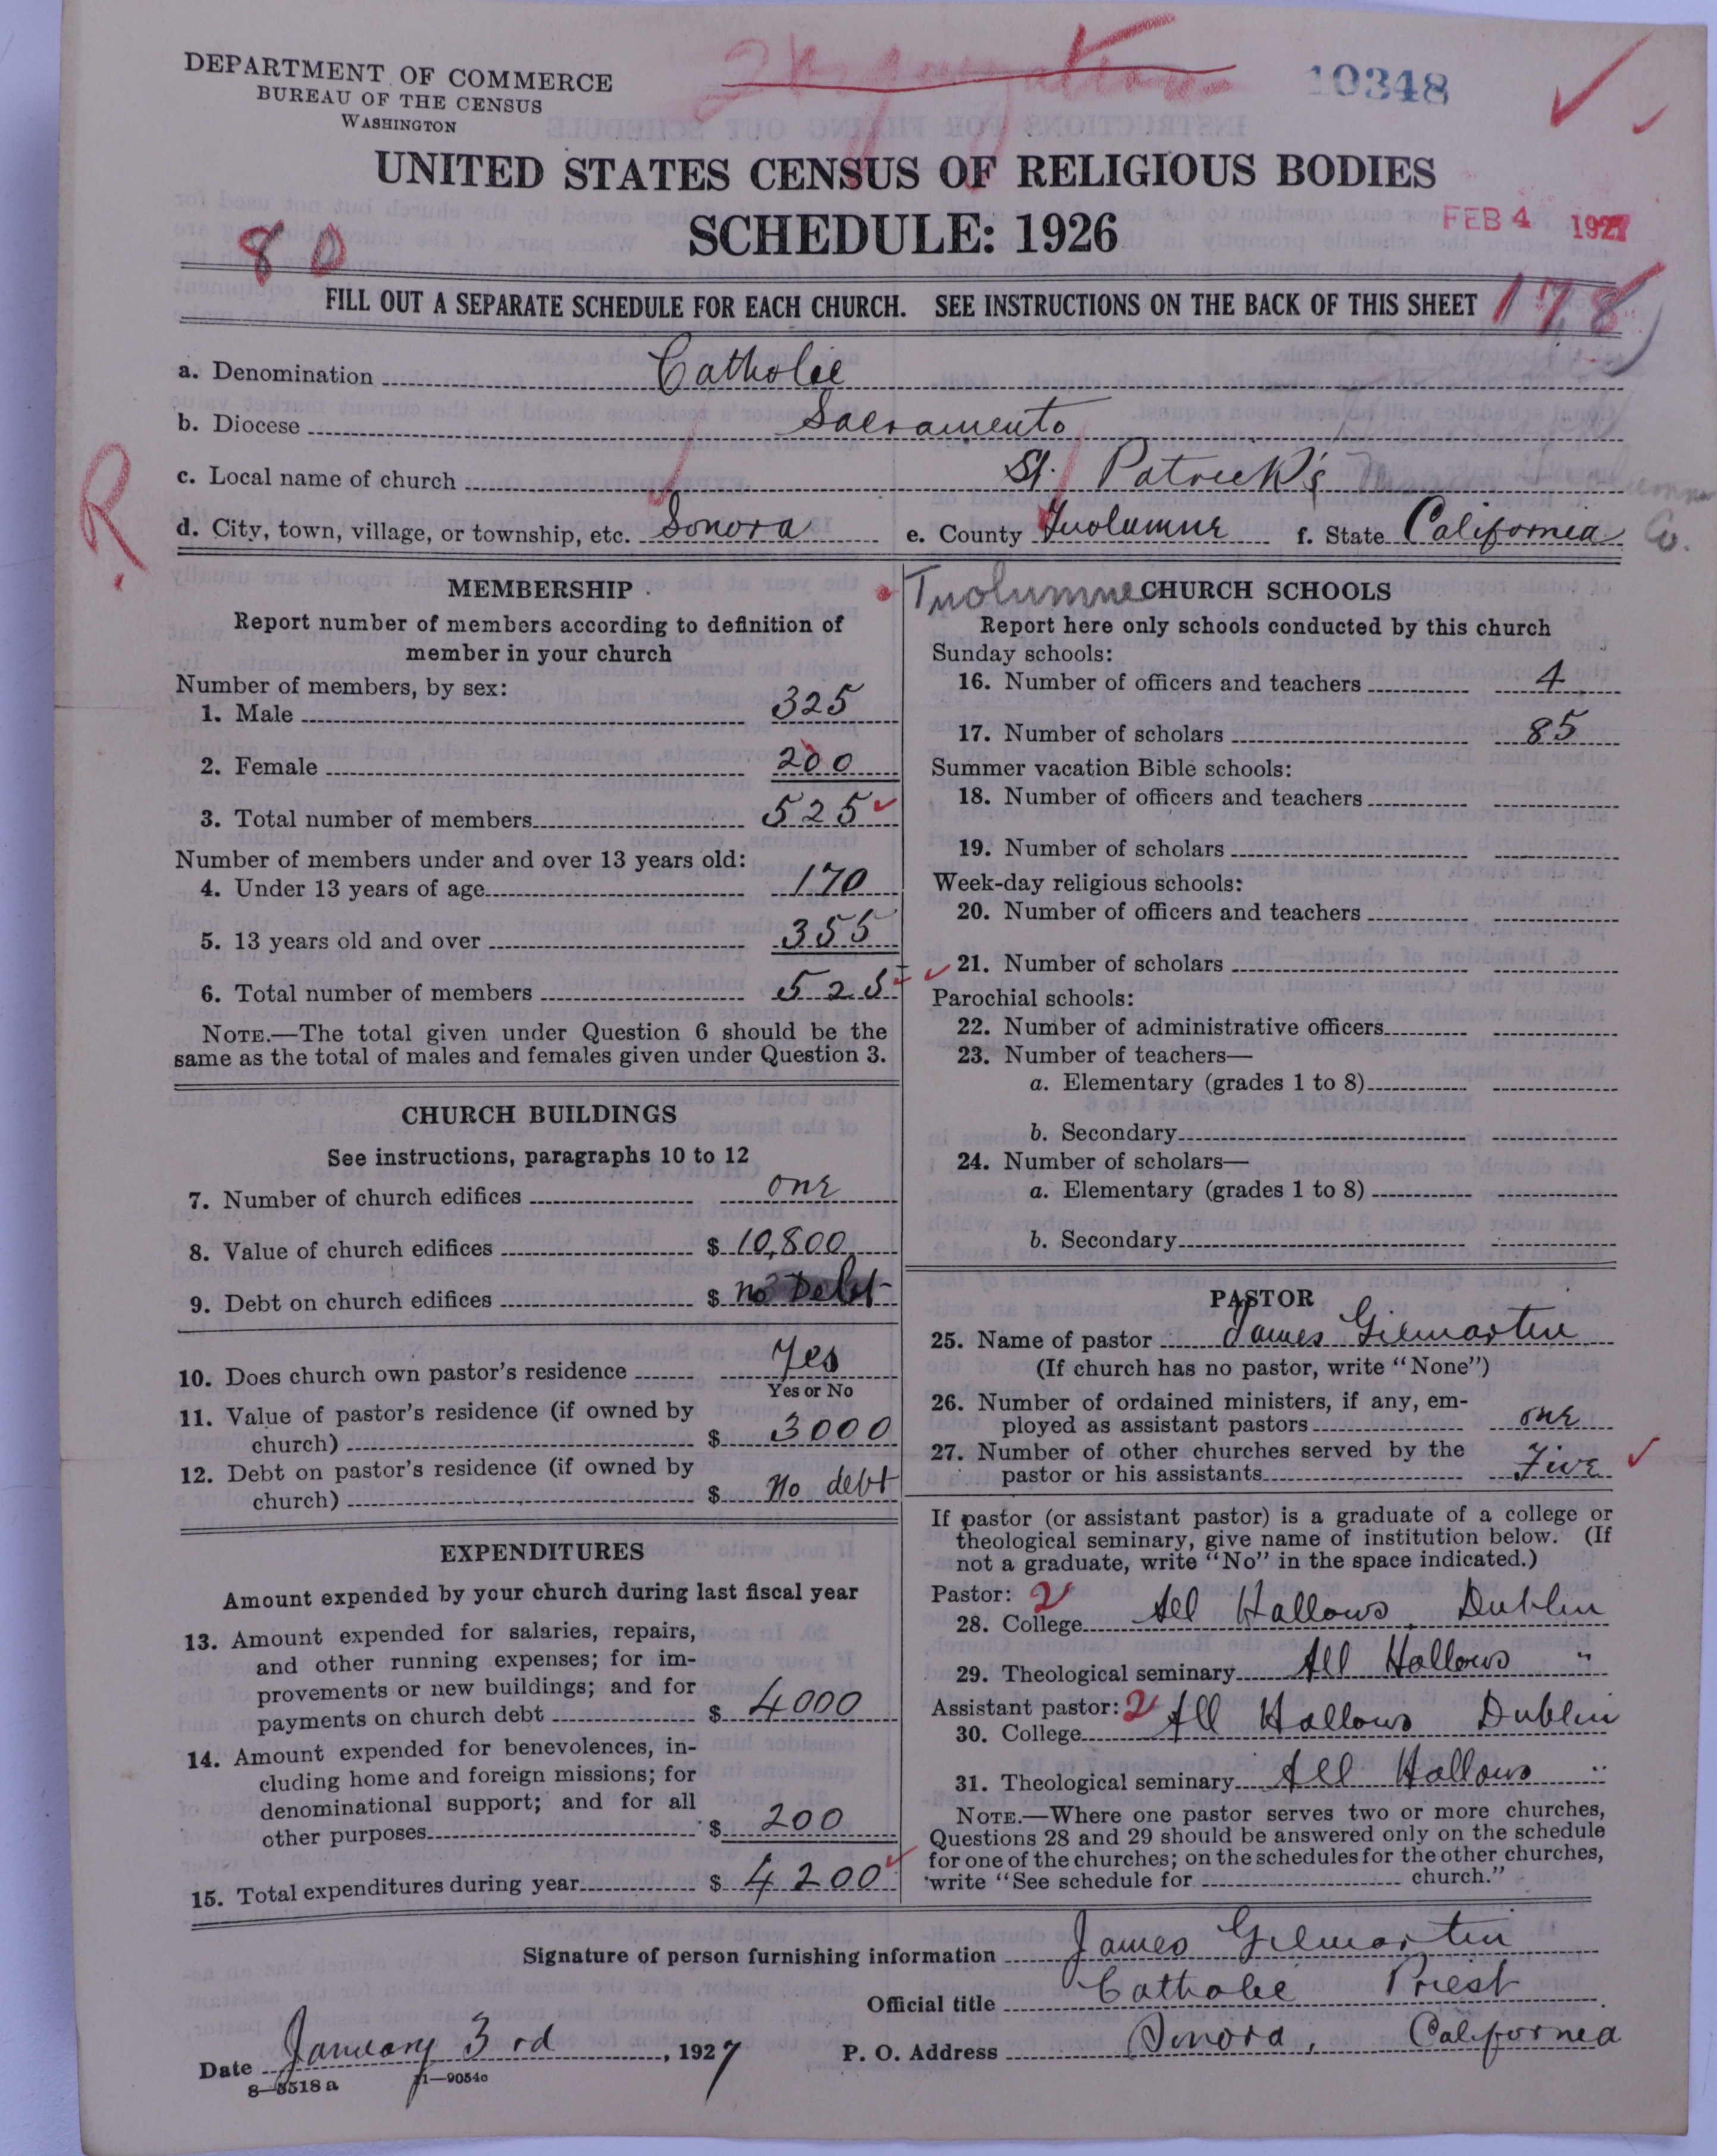 DEPARTMENT OF COMMERCE
BUREAU OF THE CENSUS
WASHINGTON
10348
UNITED STATES CENSUS OF RELIGIOUS BODIES
SCHEDULE: 1926
FEB 4 1927
80
FILL OUT A SEPARATE SCHEDULE FOR EACH CHURCH. SEE INSTRUCTIONS ON THE BACK OF THIS SHEET
178
a. Denomination Catholic
b. Diocese Sacramento
c. Local name of church St. Patrick's
R.
d. City, town, village, or township, etc. Sonora e. County Tuolumne f. State California
Co.
MEMBERSHIP
Report number of members according to definition of
member in your church
Number of members, by sex:
1. Male 325
2. Female 200
3. Total number of members 525
Number of members under and over 13 years old:
4. Under 13 years of age 170
5. 13 years old and over 355
6. Total number of members 525
NOTE.—The total given under Question 6 should be the
same as the total of males and females given under Question 3.
CHURCH BUILDINGS
See instructions, paragraphs 10 to 12
7. Number of church edifices one
8. Value of church edifices $ 10,800
9. Debt on church edifices $ no Debt
10. Does church own pastor's residence Yes
Yes or No
11. Value of pastor's residence (if owned by
church) $ 3000
12. Debt on pastor's residence (if owned by
church) $ No debt
EXPENDITURES
Amount expended by your church during last fiscal year
13. Amount expended for salaries, repairs,
and other running expenses; for im-
provements or new buildings; and for
payments on church debt $ 4000
14. Amount expended for benevolences, in-
cluding home and foreign missions; for
denominational support; and for all
other purposes $ 200
15. Total expenditures during year $ 4200
Tuolumne CHURCH SCHOOLS
Report here only schools conducted by this church
Sunday schools:
16. Number of officers and teachers 4
17. Number of scholars 85
Summer vacation Bible schools:
18. Number of officers and teachers
19. Number of scholars
Week-day religious schools:
20. Number of officers and teachers
21. Number of scholars
Parochial schools:
22. Number of administrative officers
23. Number of teachers—
a. Elementary (grades 1 to 8)
b. Secondary
24. Number of scholars—
a. Elementary (grades 1 to 8)
b. Secondary
PASTOR
25. Name of pastor James Gilmartin
(If church has no pastor, write "None")
26. Number of ordained ministers, if any, em-
ployed as assistant pastors one
27. Number of other churches served by the
pastor or his assistants Five
If pastor (or assistant pastor) is a graduate of a college or
theological seminary, give name of institution below. (If
not a graduate, write "No" in the space indicated.)
Pastor: 2
28. College All Hallows Dublin
29. Theological seminary All Hallows "
Assistant pastor: 2
30. College All Hallows Dublin
31. Theological seminary All Hallows "
NOTE.—Where one pastor serves two or more churches,
Questions 28 and 29 should be answered only on the schedule
for one of the churches; on the schedules for the other churches,
write "See schedule for church."
Signature of person furnishing information James Gilmartin
Official title Catholic Priest
Date January 3rd, 1927 P. O. Address Sonora, California
8—5518 a 11—9054o